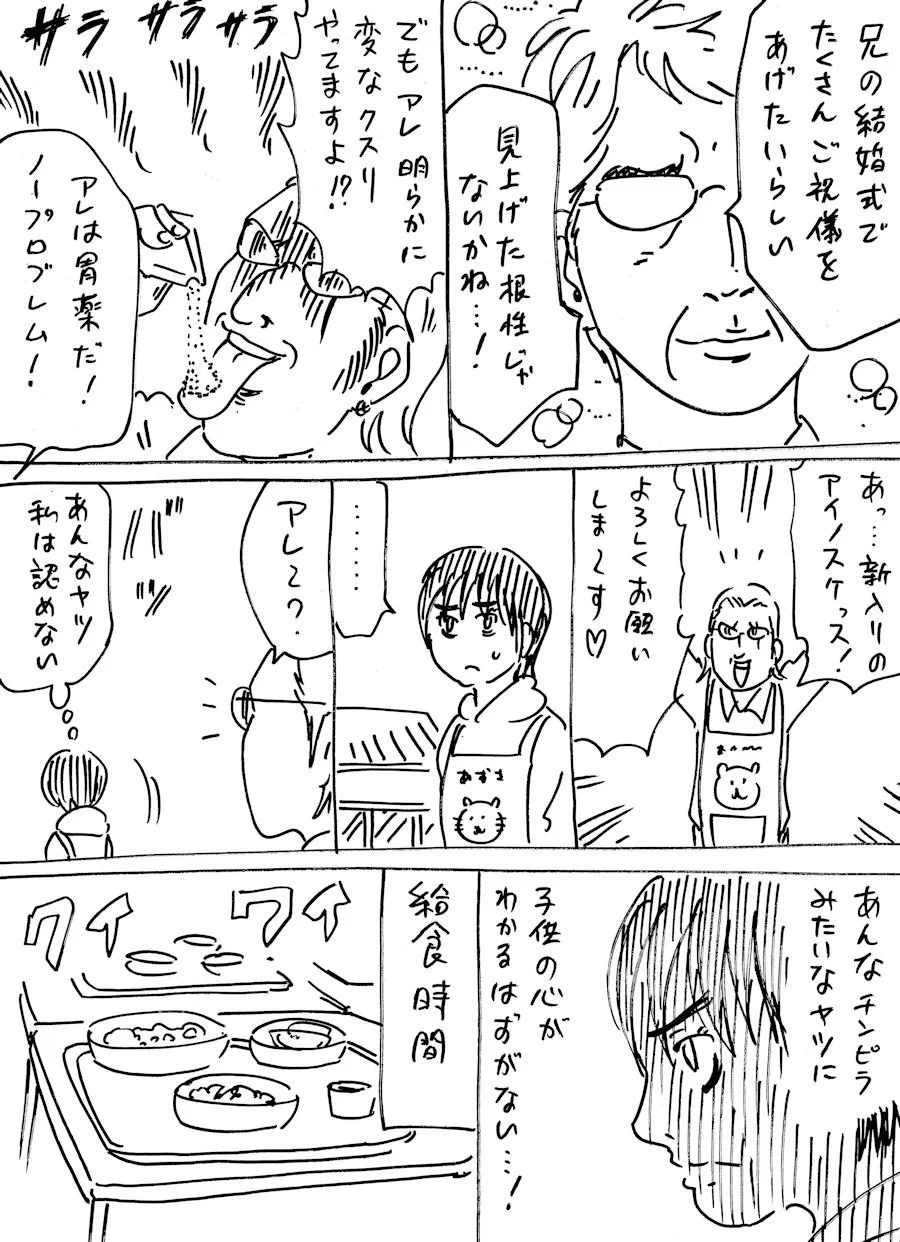 兄の結婚式で
たくさんご祝儀を
あげたいらしい
見上げた根性じゃ
ないかね…!
でもアレ明らかに
変なクスリ
やってますよ!?
サラ サラ サラ
アレは胃薬だ!
ノープロブレム!
あっ…新入りの
アイノスケっス!
よろしくお願い
しま〜す♡
………
あずさ
アレ〜?
あんなヤツ
私は認めない
あんなチンピラ
みたいなヤツに
子供の心が
わかるはずがない…!
給食時間
ワイ
ワイ